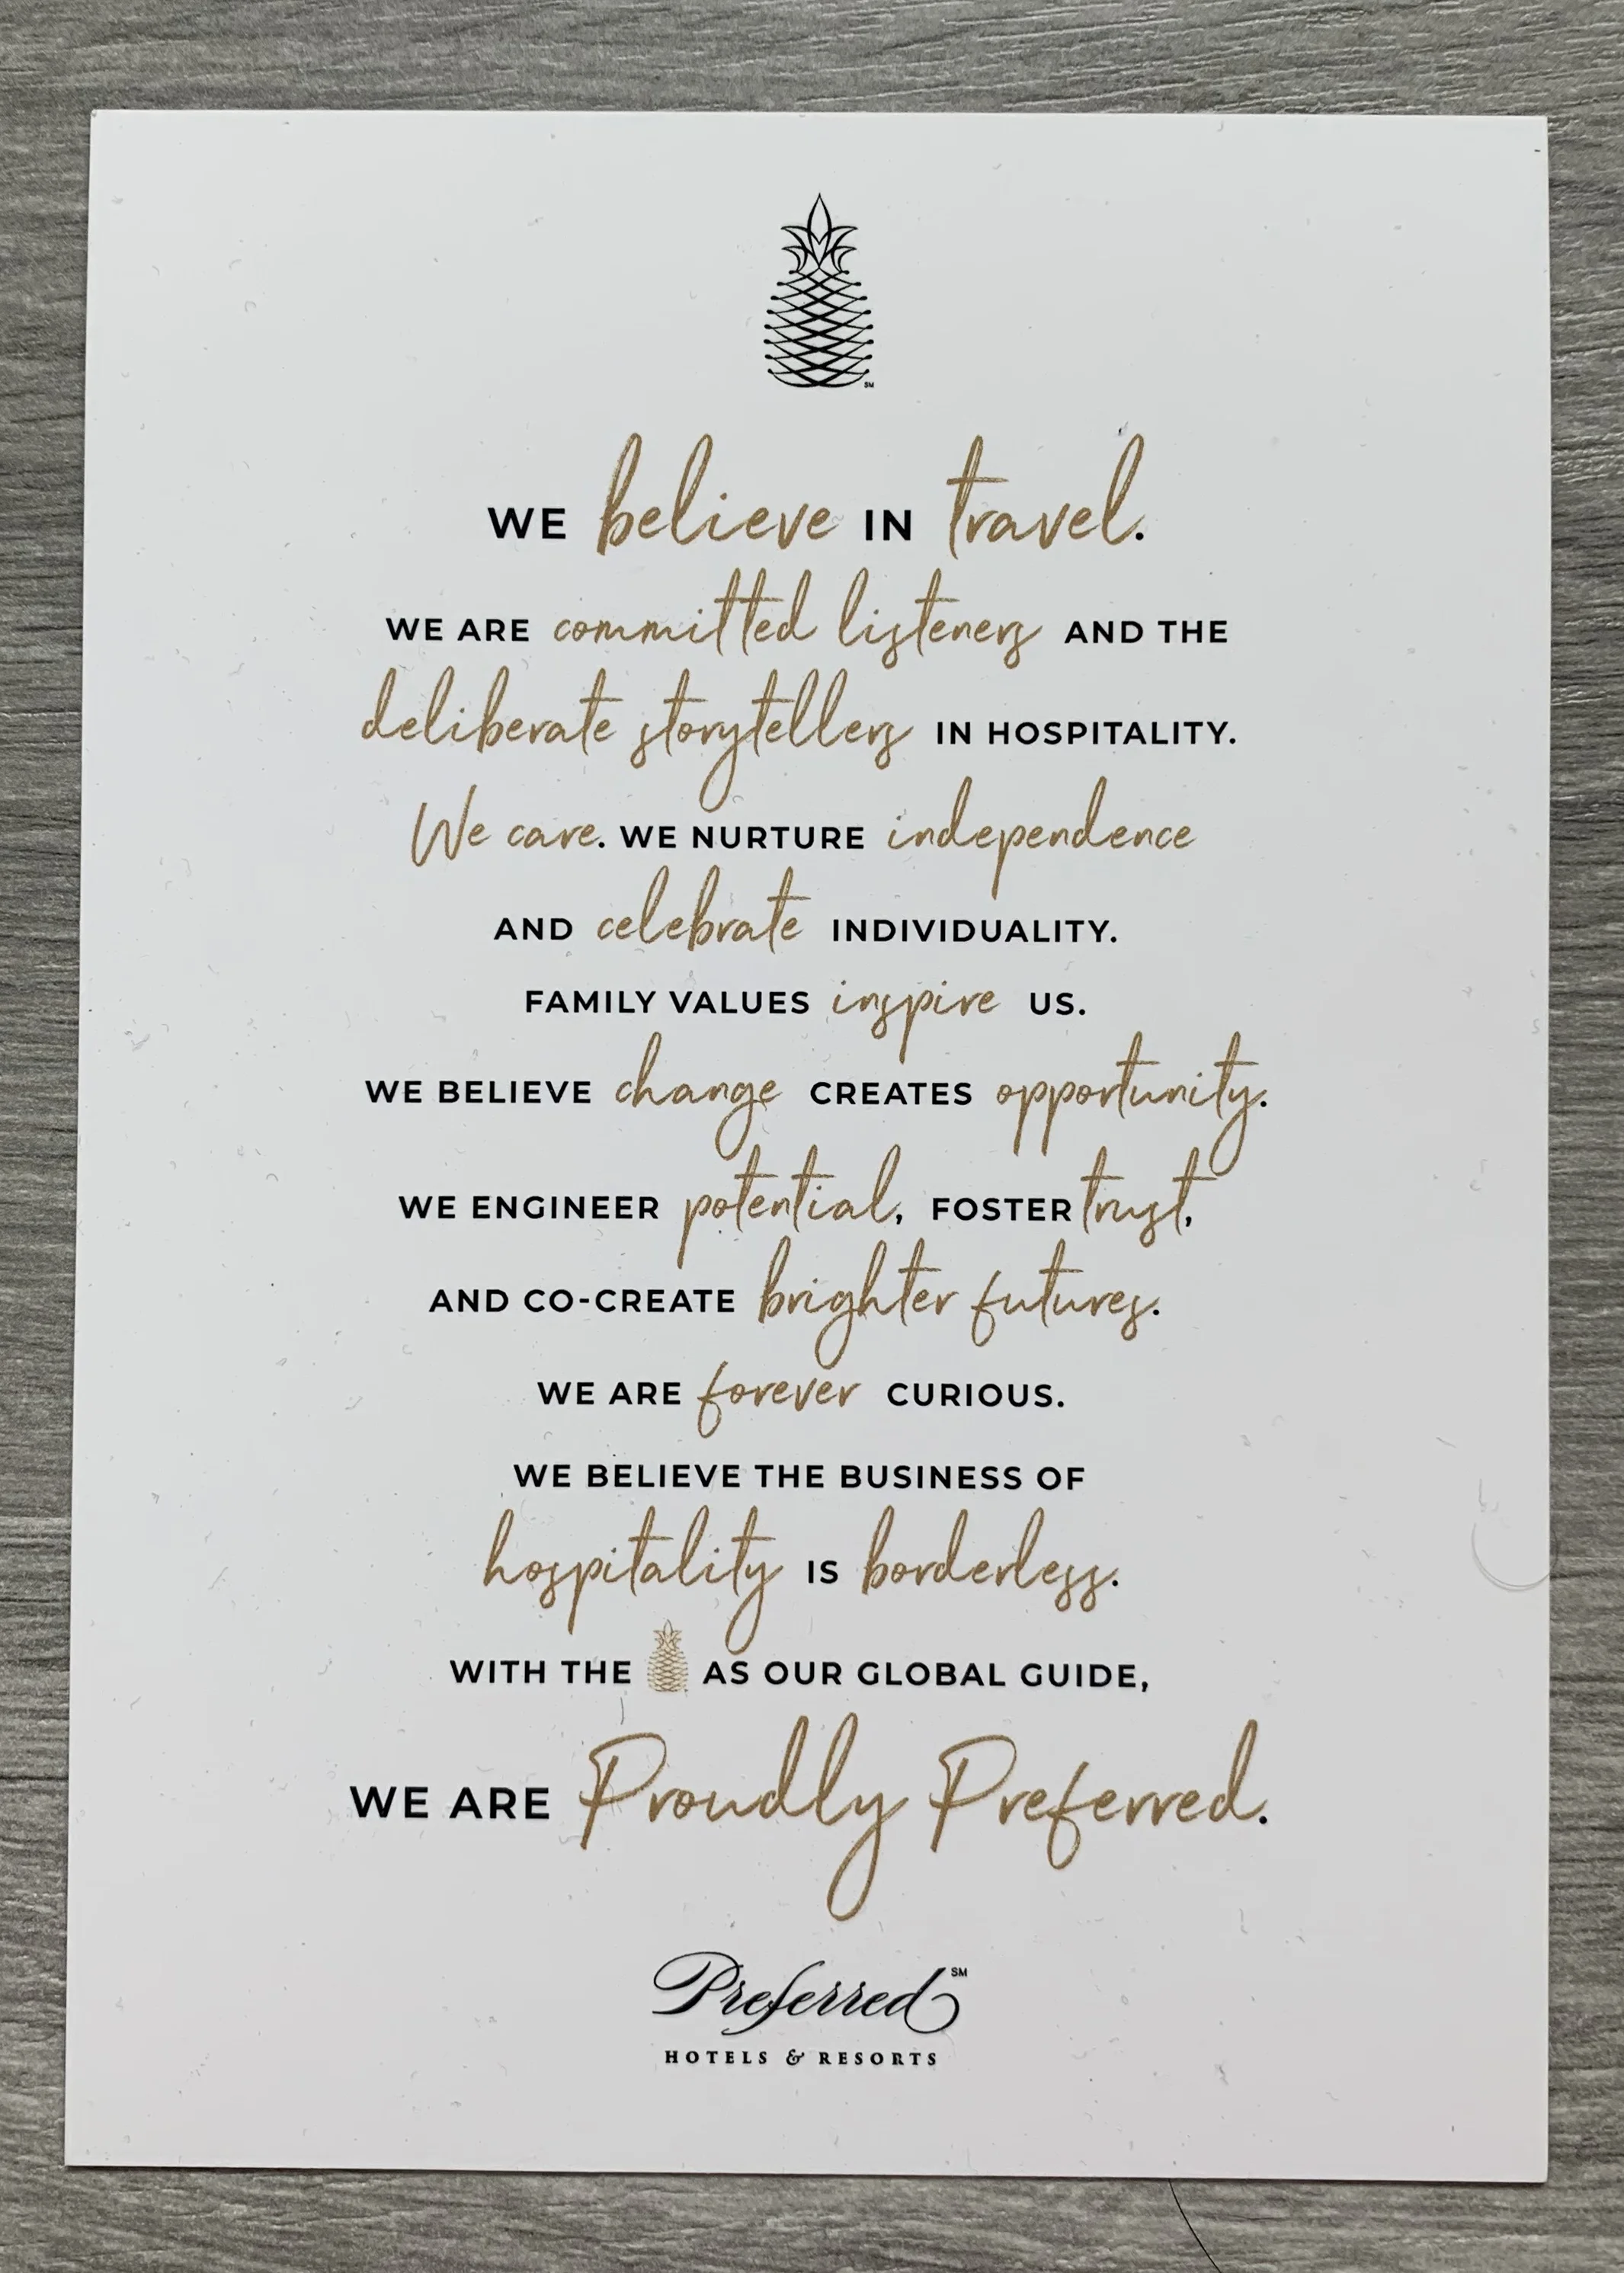 SM
WE believe IN travel.
WE ARE committed listeners AND THE
deliberate storytellers IN HOSPITALITY.
We care. WE NURTURE independence
AND celebrate INDIVIDUALITY.
FAMILY VALUES inspire US.
WE BELIEVE change CREATES opportunity.
WE ENGINEER potential, FOSTER trust,
AND CO-CREATE brighter futures.
WE ARE forever CURIOUS.
WE BELIEVE THE BUSINESS OF
hospitality IS borderless.
WITH THE AS OUR GLOBAL GUIDE,
WE ARE Proudly Preferred.
Preferred SM
HOTELS & RESORTS